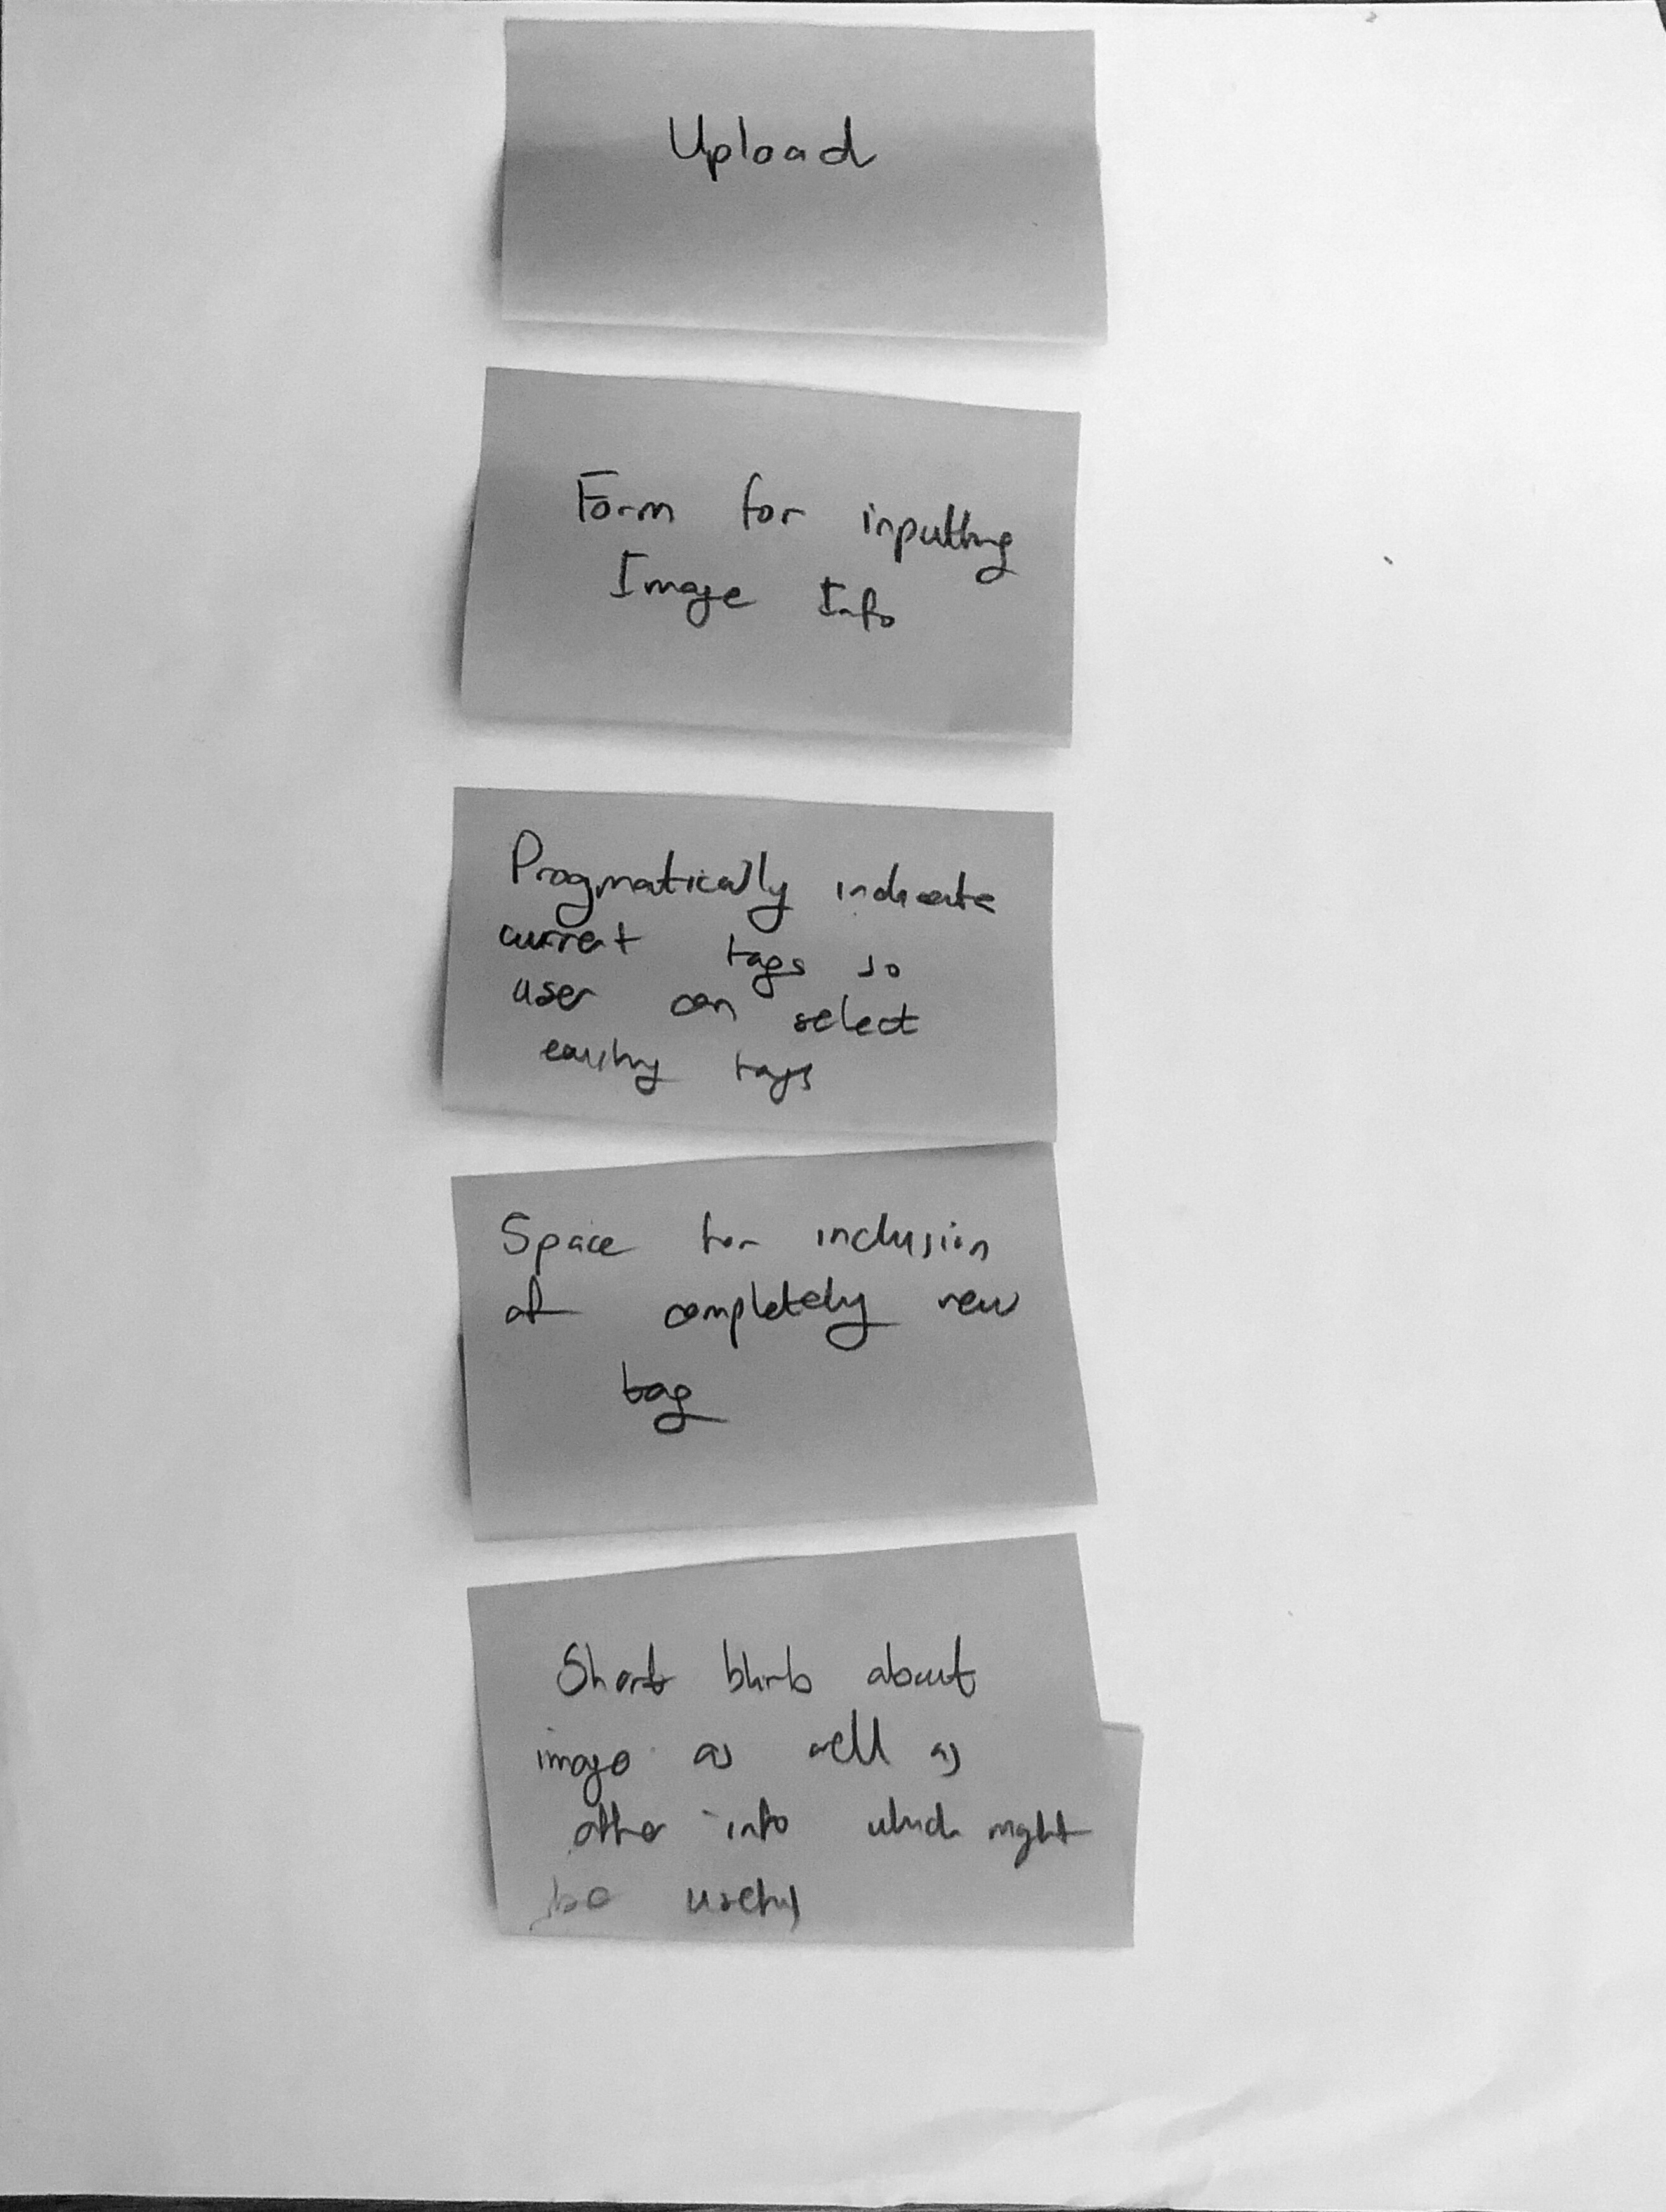 Upload
Form for inputting
Image Info
Progmatically indicate
current tags so
user can select
tags
Space for inclusion
of completely new
tag
Short blurb about
image as well as
other info which might
be useful